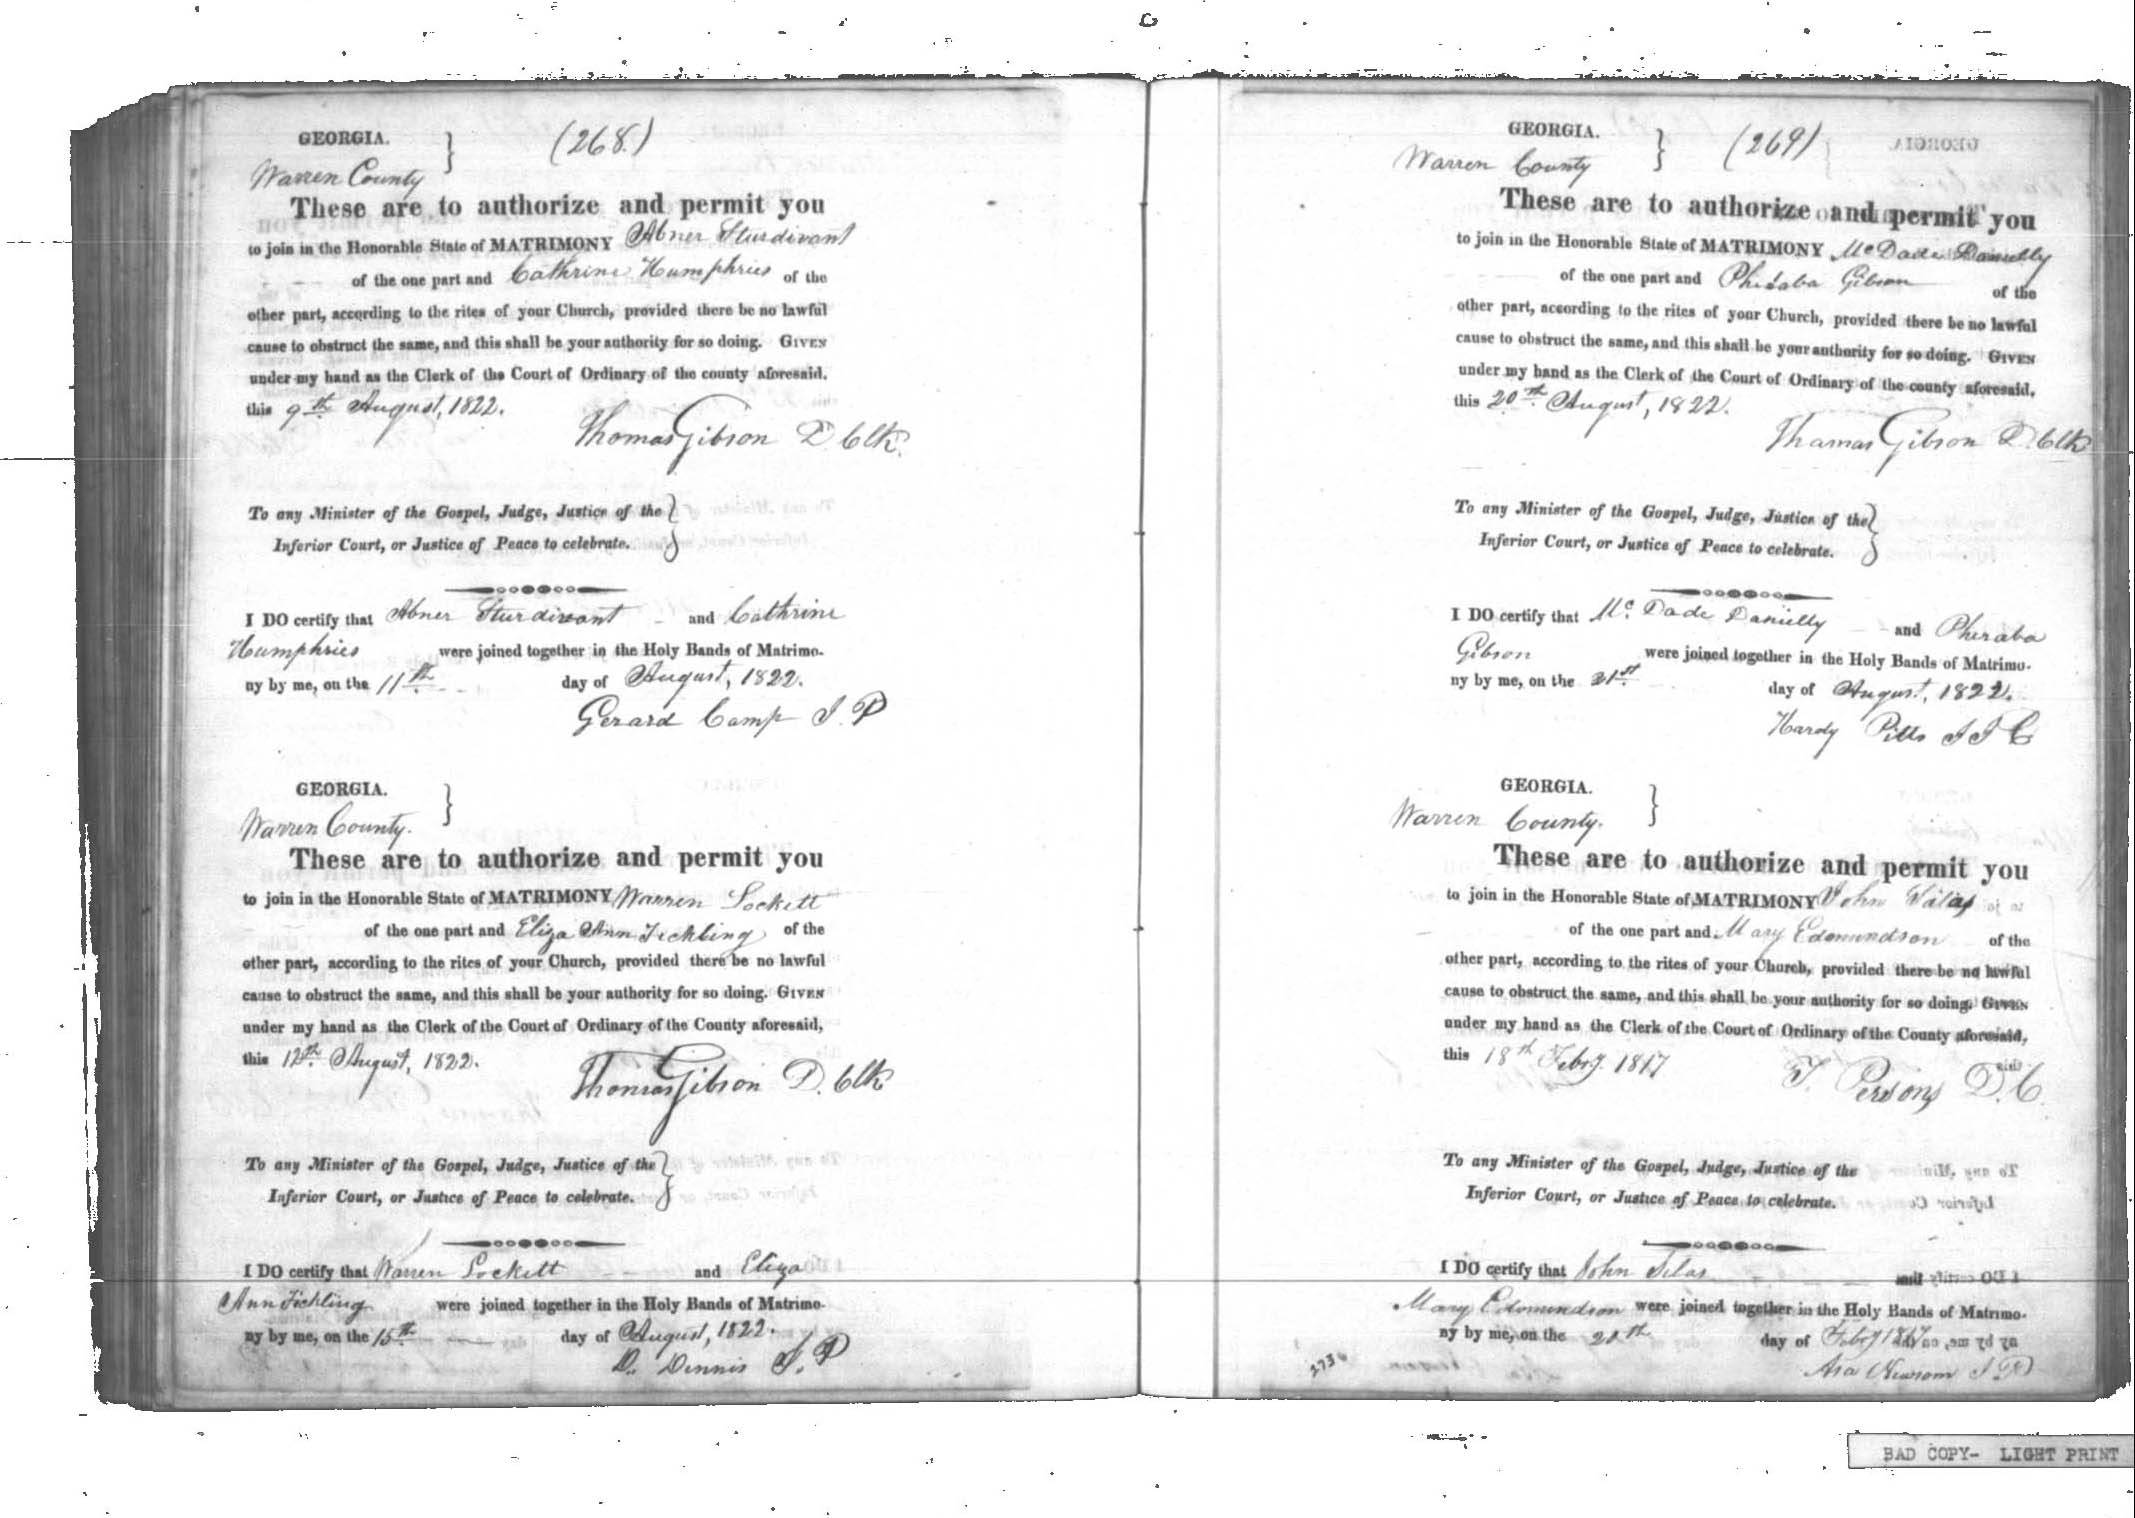 GEORGIA. } (268.)
Warren County
These are to authorize and permit you
to join in the Honorable State of MATRIMONY Abner Sturdivant
of the one part and Cathrine Humphries of the
other part, according to the rites of your Church, provided there be no lawful
cause to obstruct the same, and this shall be your authority for so doing. GIVEN
under my hand as the Clerk of the Court of Ordinary of the county aforesaid,
this 9th August, 1822.
Thomas Gibson D. Clk.
To any Minister of the Gospel, Judge, Justice of the }
Inferior Court, or Justice of Peace to celebrate.
I DO certify that Abner Sturdivant and Cathrine
Humphries were joined together in the Holy Bands of Matrimo-
ny by me, on the 11th day of August, 1822.
Gerard Camp J. P
GEORGIA. }
Warren County.
These are to authorize and permit you
to join in the Honorable State of MATRIMONY Warren Lockett
of the one part and Eliza Ann Fickling of the
other part, according to the rites of your Church, provided there be no lawful
cause to obstruct the same, and this shall be your authority for so doing. GIVEN
under my hand as the Clerk of the Court of Ordinary of the County aforesaid,
this 12th August, 1822.
Thomas Gibson D. Clk
To any Minister of the Gospel, Judge, Justice of the }
Inferior Court, or Justice of Peace to celebrate.
I DO certify that Warren Lockett and Eliza
Ann Fickling were joined together in the Holy Bands of Matrimo-
ny by me, on the 15th day of August, 1822.
D. Dennis J. P
GEORGIA. } (269)
Warren County
These are to authorize and permit you
to join in the Honorable State of MATRIMONY McDade Danielly
of the one part and Pheraba Gibson of the
other part, according to the rites of your Church, provided there be no lawful
cause to obstruct the same, and this shall be your authority for so doing. GIVEN
under my hand as the Clerk of the Court of Ordinary of the county aforesaid,
this 20th August, 1822.
Thomas Gibson D. Clk
To any Minister of the Gospel, Judge, Justice of the }
Inferior Court, or Justice of Peace to celebrate.
I DO certify that Mc. Dade Danielly and Pheraba
Gibson were joined together in the Holy Bands of Matrimo-
ny by me, on the 21st day of August, 1822.
Hardy Pitts J I C
GEORGIA. }
Warren County.
These are to authorize and permit you
to join in the Honorable State of MATRIMONY John Silas
of the one part and Mary Edmundson of the
other part, according to the rites of your Church, provided there be no lawful
cause to obstruct the same, and this shall be your authority for so doing. GIVEN
under my hand as the Clerk of the Court of Ordinary of the County aforesaid,
this 18th Feby. 1817
T. Persons D. C.
To any Minister of the Gospel, Judge, Justice of the
Inferior Court, or Justice of Peace to celebrate.
I DO certify that John Silas
Mary Edmundson were joined together in the Holy Bands of Matrimo-
ny by me, on the 20th day of Feby 1817
Asa Newsom J P
273
BAD COPY- LIGHT PRINT